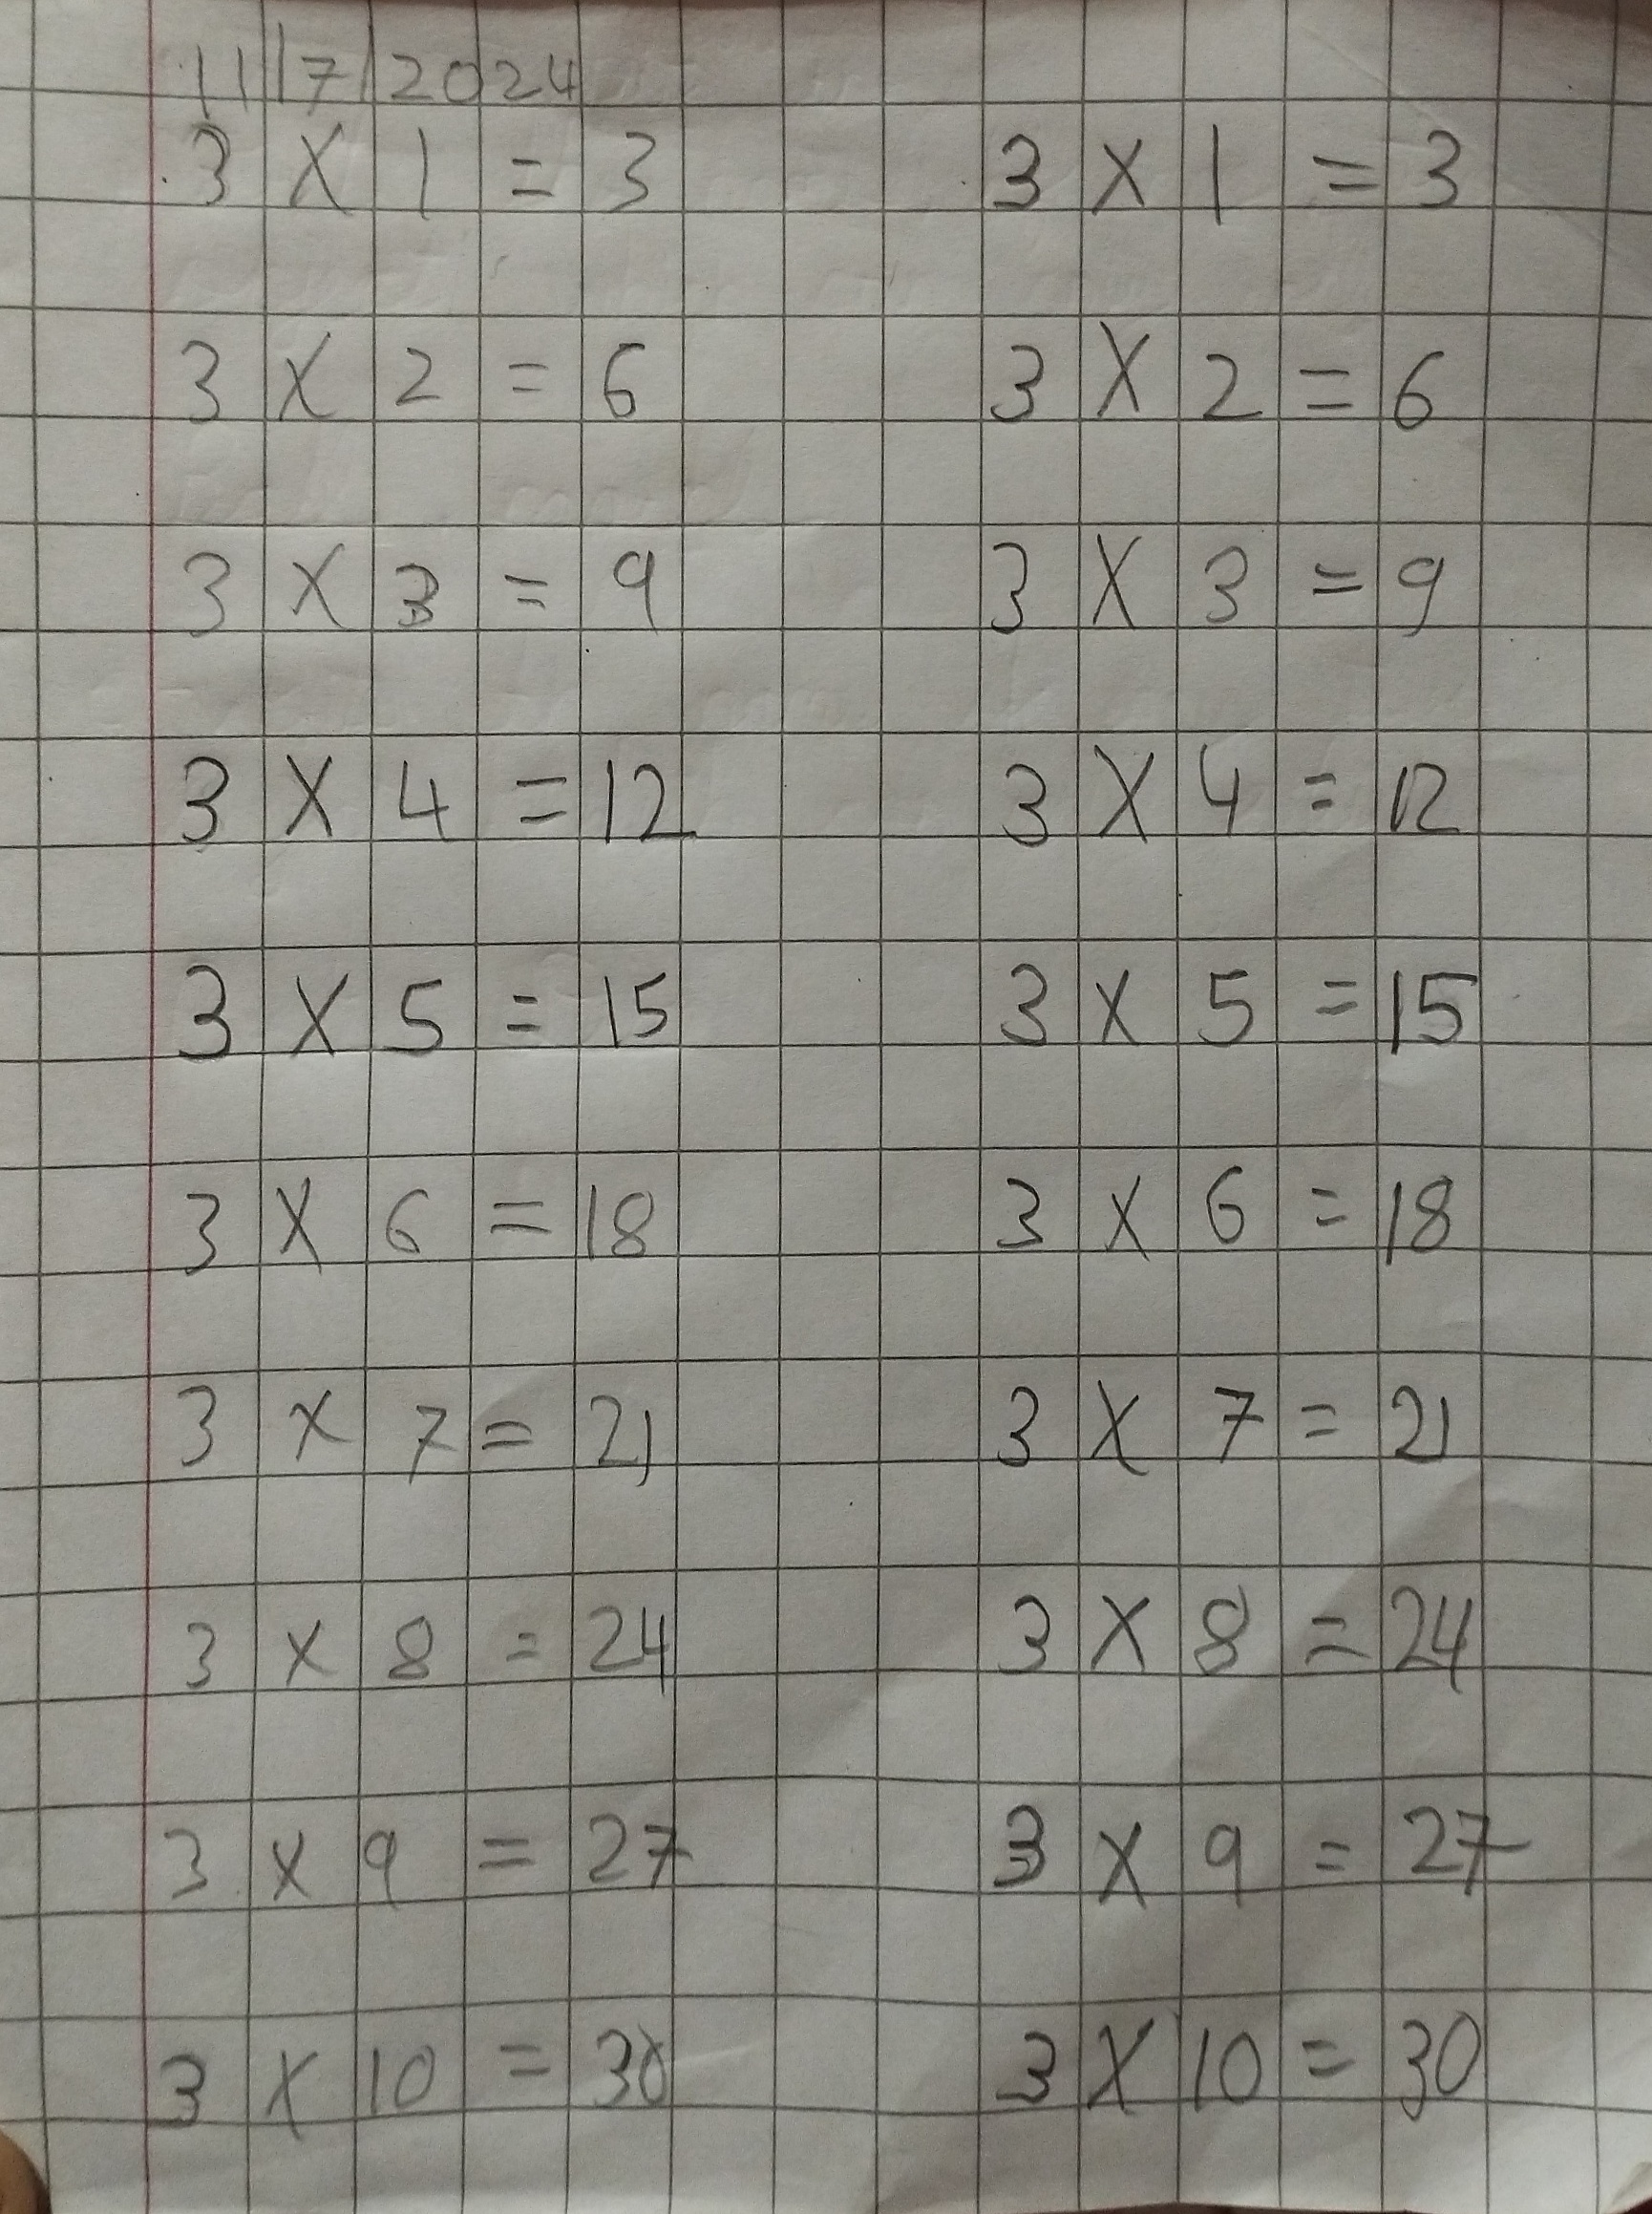 11/7/2024
3 X 1 = 3 3 X 1 = 3
3 X 2 = 6 3 X 2 = 6
3 X 3 = 9 3 X 3 = 9
3 X 4 = 12 3 X 4 = 12
3 X 5 = 15 3 X 5 = 15
3 X 6 = 18 3 X 6 = 18
3 X 7 = 21 3 X 7 = 21
3 X 8 = 24 3 X 8 = 24
3 X 9 = 27 3 X 9 = 27
3 X 10 = 30 3 X 10 = 30